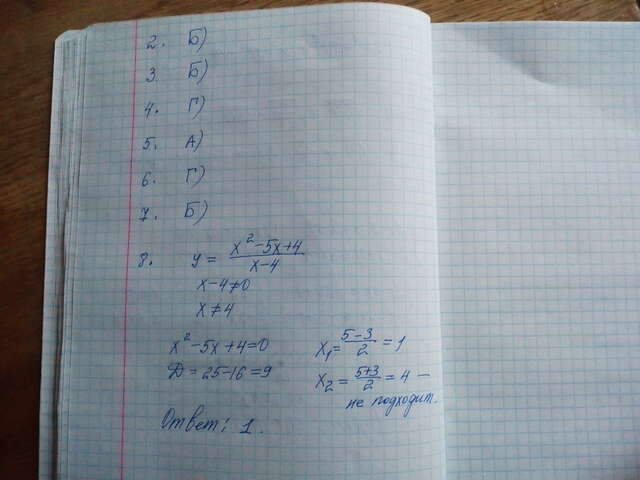 2. Б)
3. Б)
4. Г)
5. А)
6. Г)
7. Б)
8. y = (x²-5x+4)/(x-4)
x-4≠0
x≠4
x²-5x+4=0
D=25-16=9
x₁=(5-3)/2=1
x₂=(5+3)/2=4 -
не подходит.
Ответ: 1.